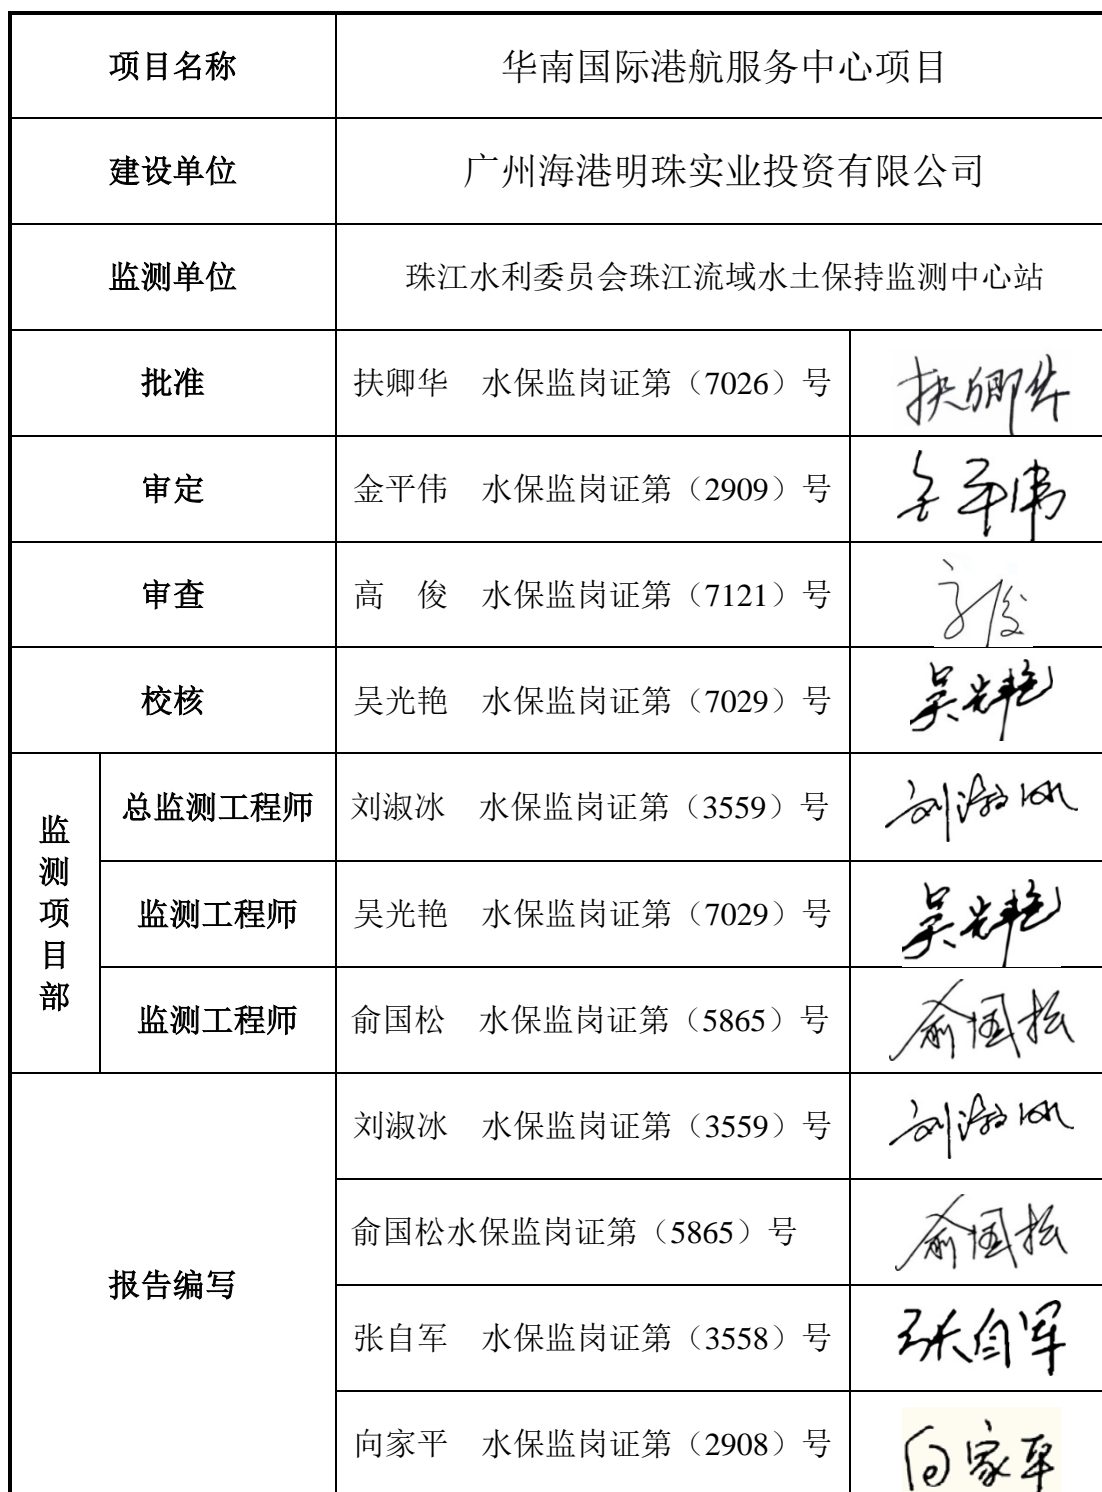 项目名称 华南国际港航服务中心项目
建设单位 广州海港明珠实业投资有限公司
监测单位 珠江水利委员会珠江流域水土保持监测中心站
批准 扶卿华 水保监岗证第（7026）号 扶卿华
审定 金平伟 水保监岗证第（2909）号 金平伟
审查 高 俊 水保监岗证第（7121）号 高俊
校核 吴光艳 水保监岗证第（7029）号 吴光艳
监测项目部
总监测工程师 刘淑冰 水保监岗证第（3559）号 刘淑冰
监测工程师 吴光艳 水保监岗证第（7029）号 吴光艳
监测工程师 俞国松 水保监岗证第（5865）号 俞国松
报告编写
刘淑冰 水保监岗证第（3559）号 刘淑冰
俞国松水保监岗证第（5865）号 俞国松
张自军 水保监岗证第（3558）号 张自军
向家平 水保监岗证第（2908）号 向家平